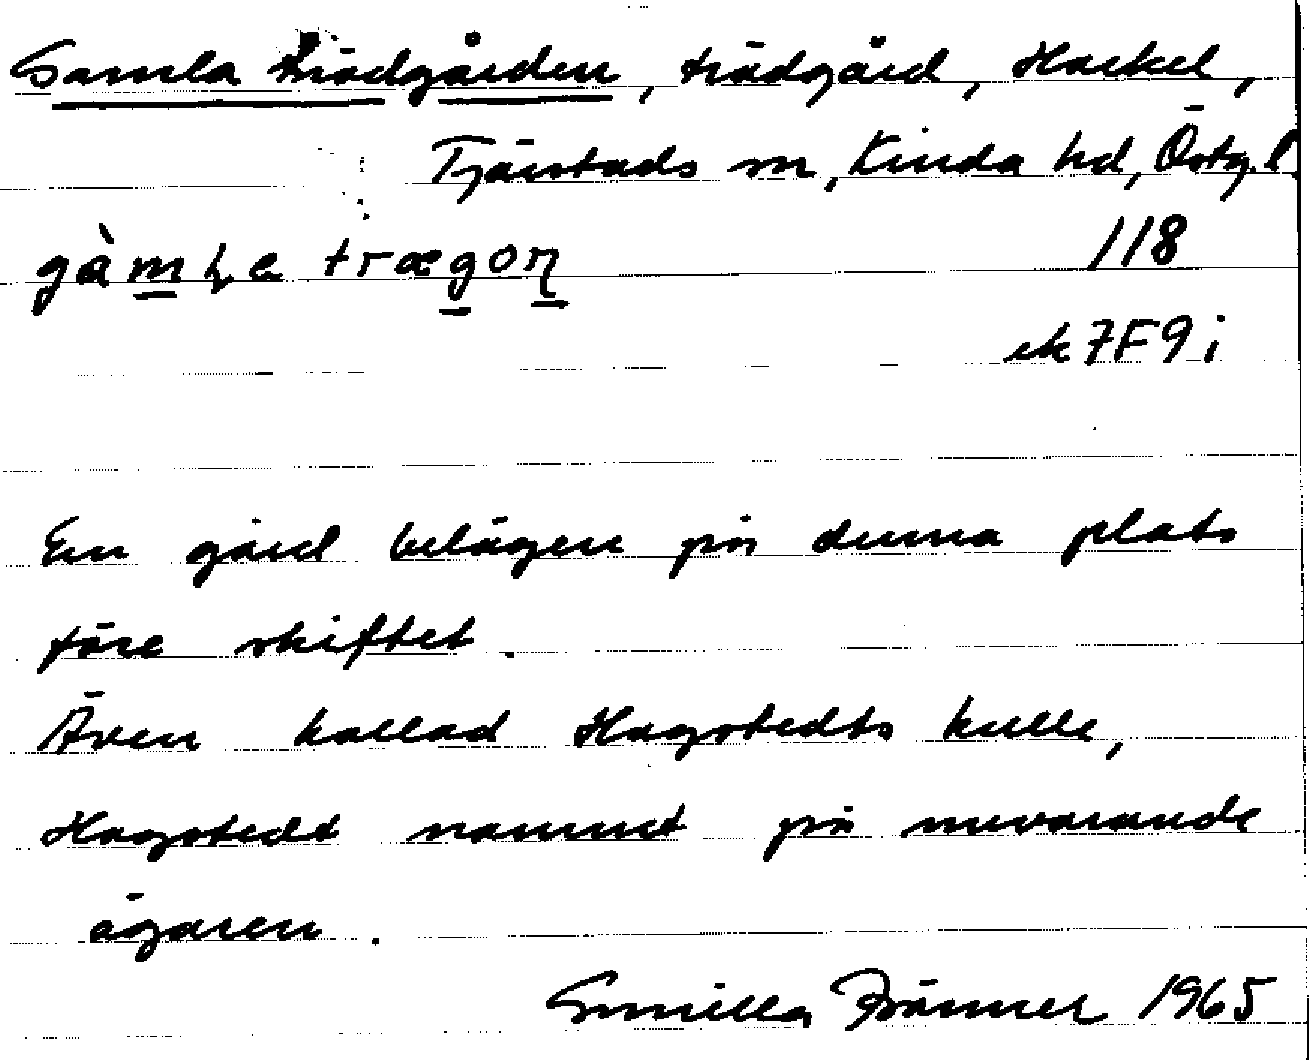 Gamla Trädgården, trädgård, Hackel,
Tjärstads sn, Kinda hd, Östg.l.
gàmḷa trægoɳ
118
ek 7F9i
En gård belägen på denna plats
före skiftet.
Även kallad Hagstedts kulle,
Hagstedt namnet på nuvarande
ägaren.
Gunilla Bränner 1965